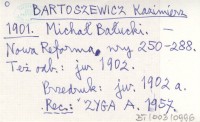 BARTOSZEWICZ Kazimierz
1901. Michał Bałucki. —
Nowa Reforma, nry 250-288.
Też odb.: jw. 1902.
Przedruk: jw. 1902 a.
Rec.: ZYGA A. 1957.